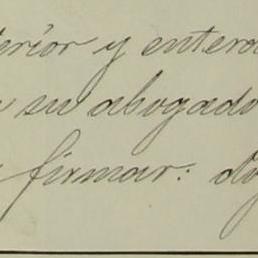 terior y entera
su abogado
firmar: doy